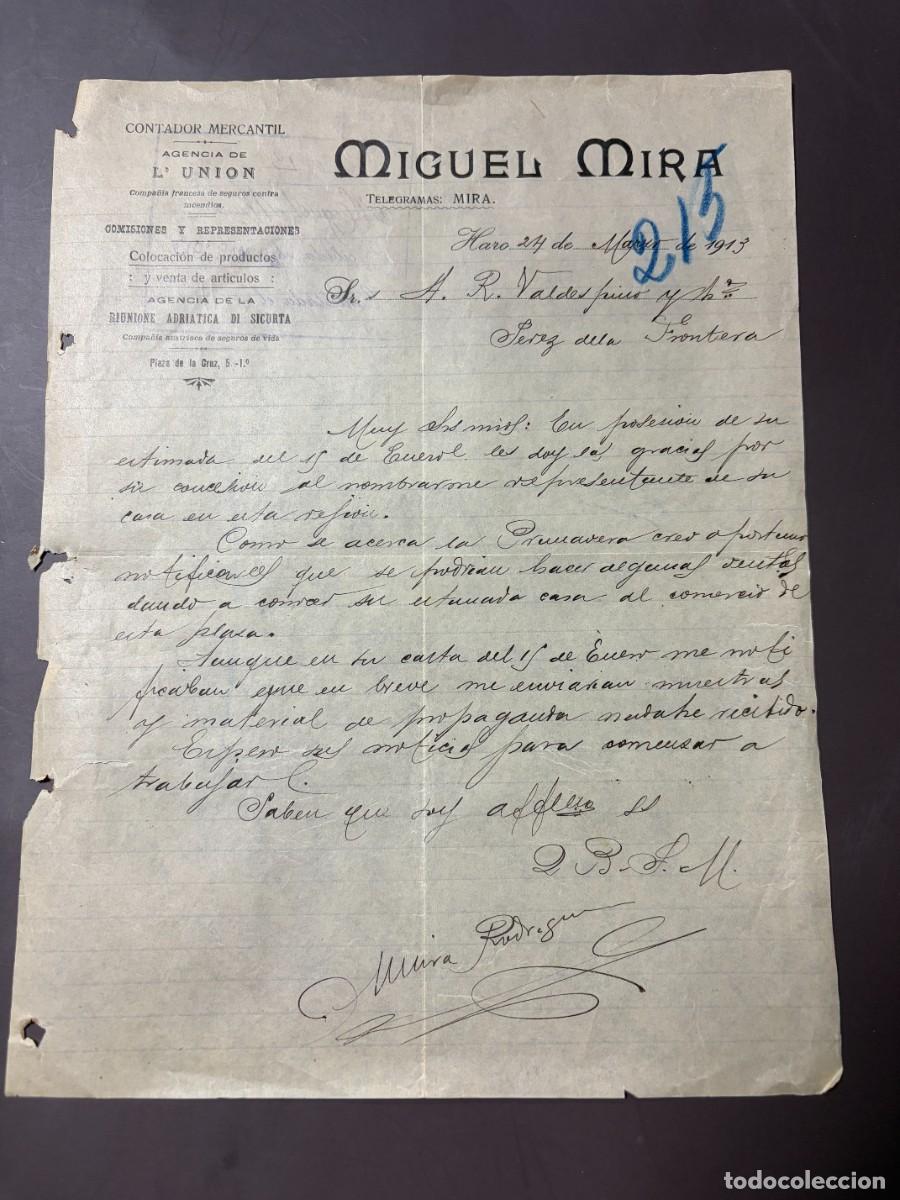 CONTADOR MERCANTIL
AGENCIA DE
L' UNION
Compañía francesa de seguros contra
incendios.
COMISIONES Y REPRESENTACIONES
Colocación de productos
: y venta de articulos :
AGENCIA DE LA
RIUNIONE ADRIATICA DI SICURTA
Compañía austriaca de seguros de vida
Plaza de la Cruz, 5.-1.º
MIGUEL MIRA
TELEGRAMAS: MIRA.
213
Haro 24 de Marzo de 1913
Sr.s A. R. Valdespino y hº
Jerez de la Frontera
Muy Srs mios: En posesion de su
estimada del 15 de Enero les doy las gracias por
su concesion al nombrarme representante de su
casa en esta region.
Como se acerca la Primavera creo oportuno
notificarles que se podrian hacer algunas ventas
dando a conocer su estimada casa al comercio de
esta plasa.
Aunque en su carta del 15 de Enero me noti
ficaban que en breve me enviarian muestras
y material de propaganda nada he recibido.
Espero sus noticias para comensar a
trabajar
Saben que soy affmo ss
Q B. S. M.
Mira Rodrigu
todocoleccion